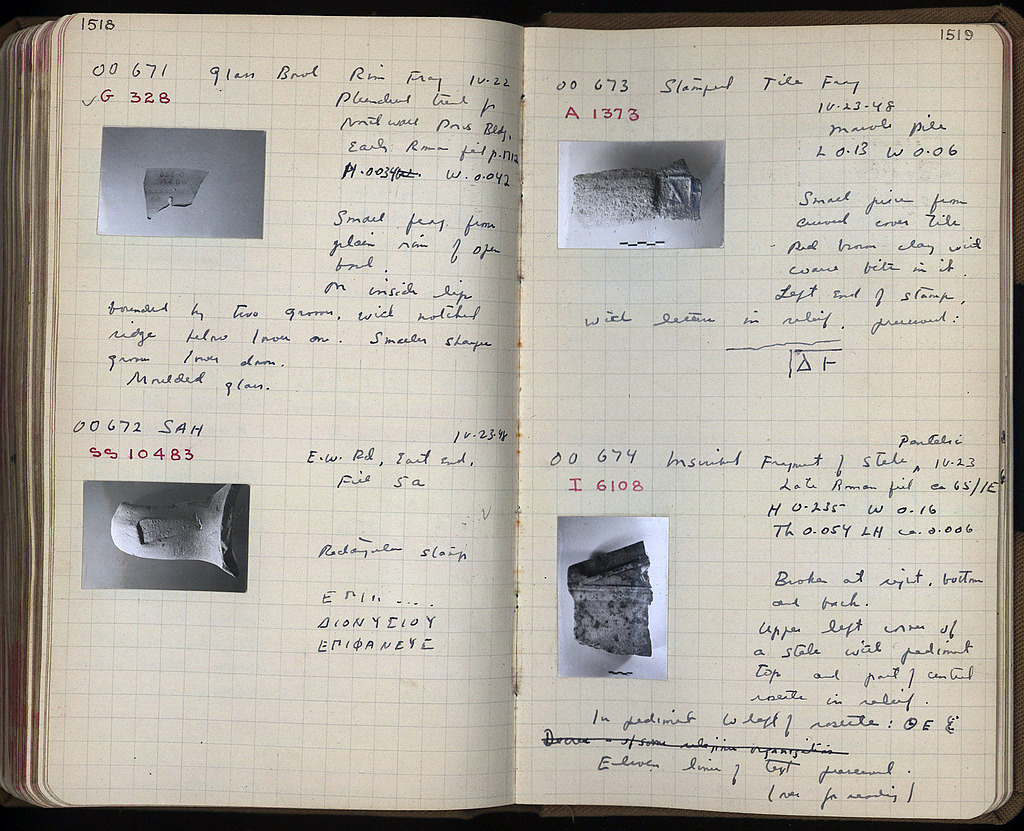 1518
OO 671 Glass Bowl Rim Frag IV-22
G 328
Plundered trench for
North wall Poros Bldg.
Early Roman fill p.
H. 0.034 W. 0.042
Small frag. from
plain rim of open
bowl.
On inside lip
bounded by two grooves, with notched
ridge below lower one. Smaller sharper
groove lower down.
Moulded glass.
OO 672 SAH IV-23-48
SS 10483
E.W. Rd, East end,
Fill 5a
Rectangular stamp
ΕΠΙΠ ....
ΔΙΟΝΥΣΙΟΥ
ΕΠΙΦΑΝΕΥΣ
1519
OO 673 Stamped Tile Frag
A 1373
IV-23-48
Marble pile
L 0.13 W 0.06
Small piece from
curved cover tile
Red brown clay with
coarse bits in it.
Left end of stamp,
with letters in relief, preserved:
ΔΗ
OO 674 Inscribed Fragment of Stele, Pentelic IV-23
I 6108
Late Roman fill ca 65/ΙΕ
H 0.235 W 0.16
Th 0.054 LH ca. 0.006
Broken at right, bottom
and back.
Upper left corner of
a stele with pediment
top and part of central
rosette in relief.
In pediment to left of rosette: ΘΕ
Decree of some religious organization
Eleven lines of text preserved.
(over for reading)